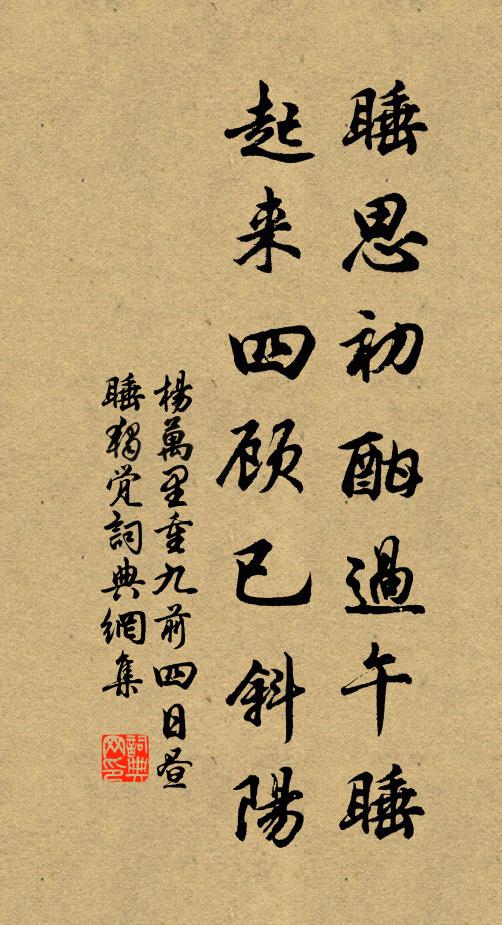 睡思初酣過午睡
起来四顾已斜陽
楊萬里重九前四日昼
睡獨覚詞典網集
詞典
网印